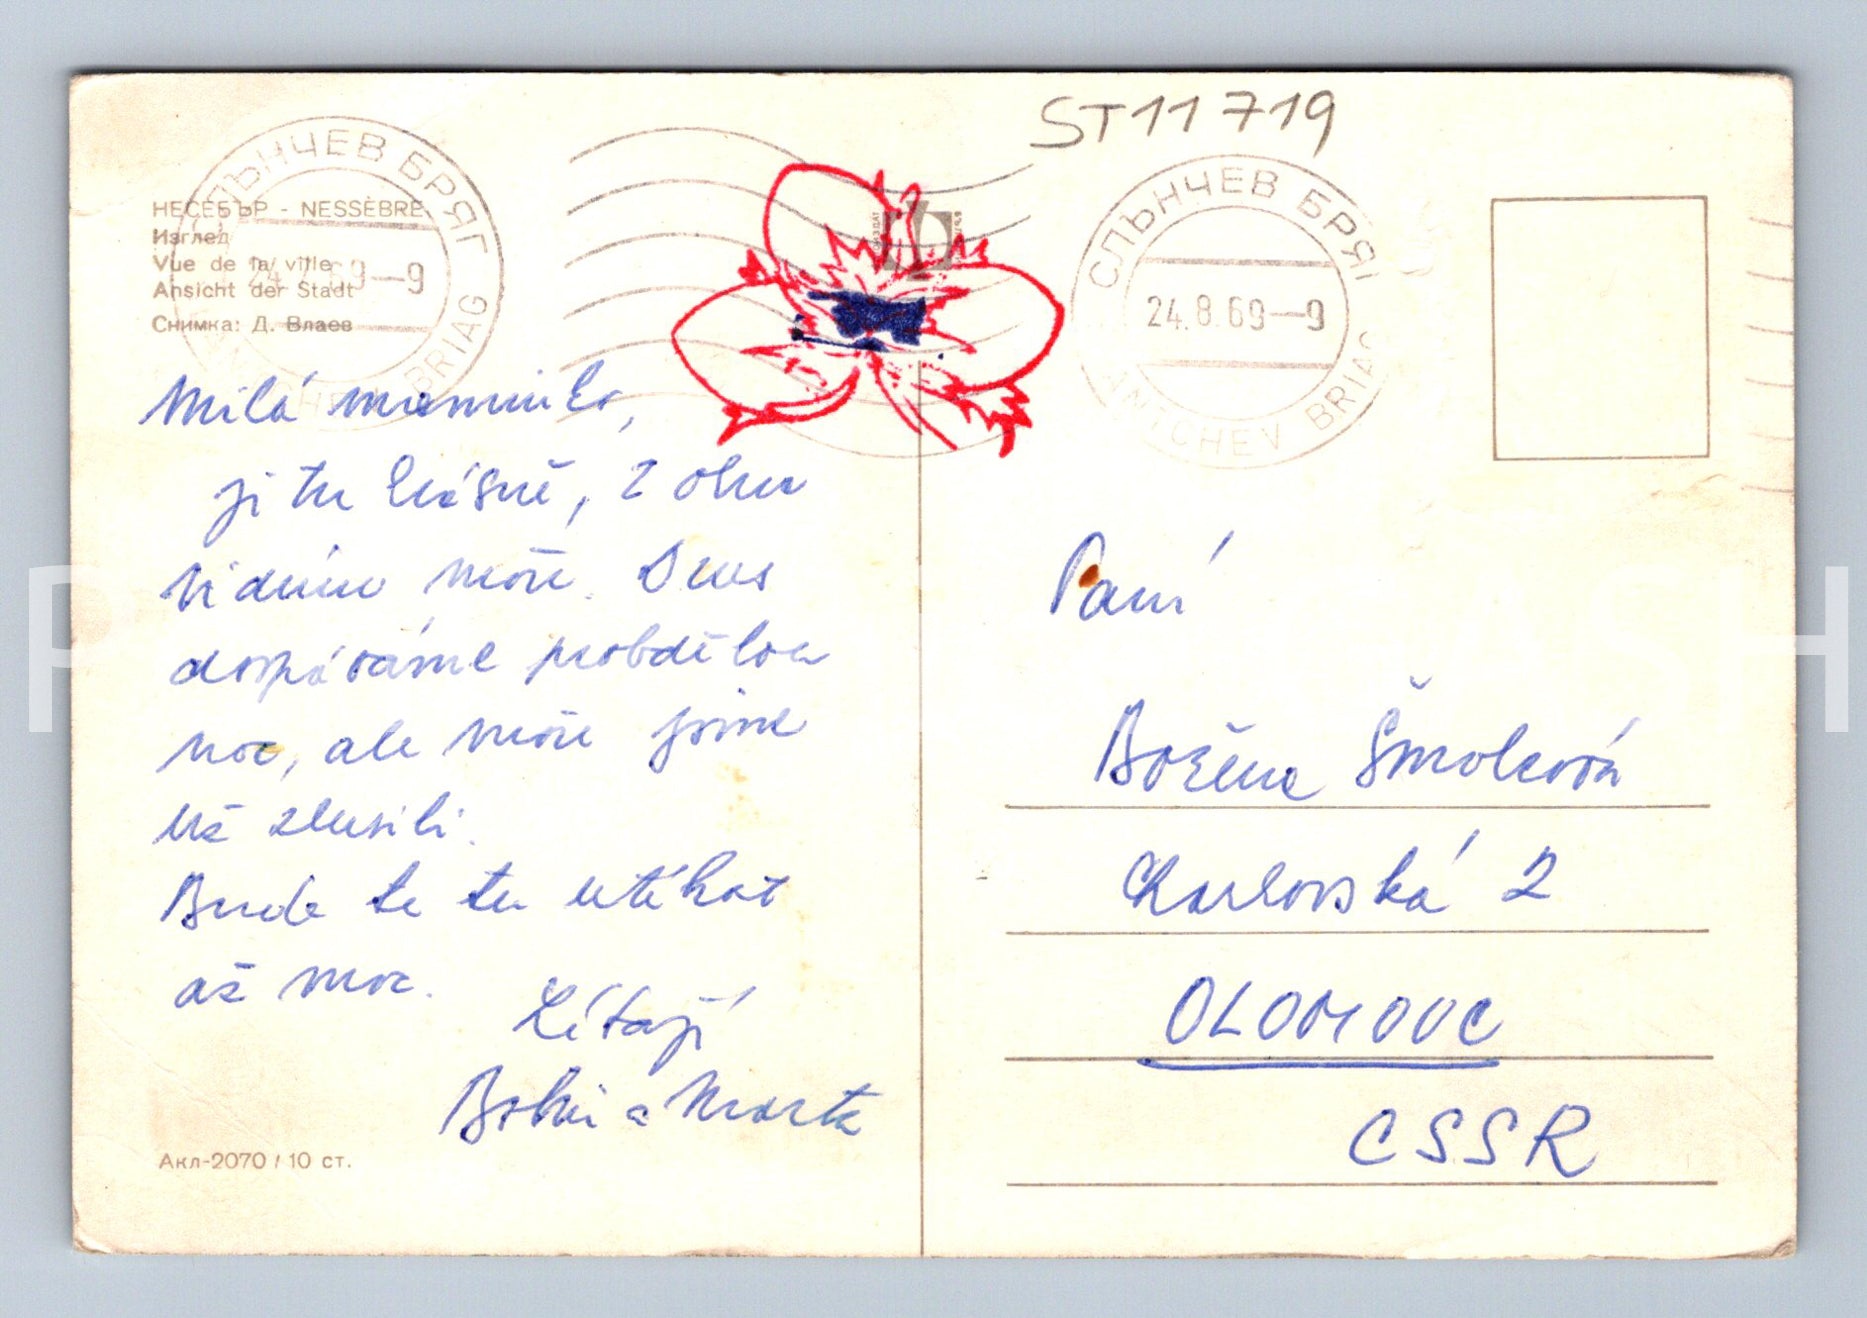 ST11719
СЛЪНЧЕВ БРЯГ
BRIAG
НЕСЕБЪР - NESSÈBRE
Изглед
Vue de la ville
Ansicht der Stadt
Снимка: Д. Влаев
СЛЪНЧЕВ БРЯГ
24.8.69-9
BRIAG
Milá maminko,
je tu krásně, z okna
vidíme moře. Dnes
dospáváme probdělou
noc, ale moře jsme
už zkusili.
Bude to tu utíkat
až moc.
Líbají
a Marta
Paní
Božena Šmolcová
Karlovská 2
OLOMOUC
CSSR
Акл-2070 / 10 ст.